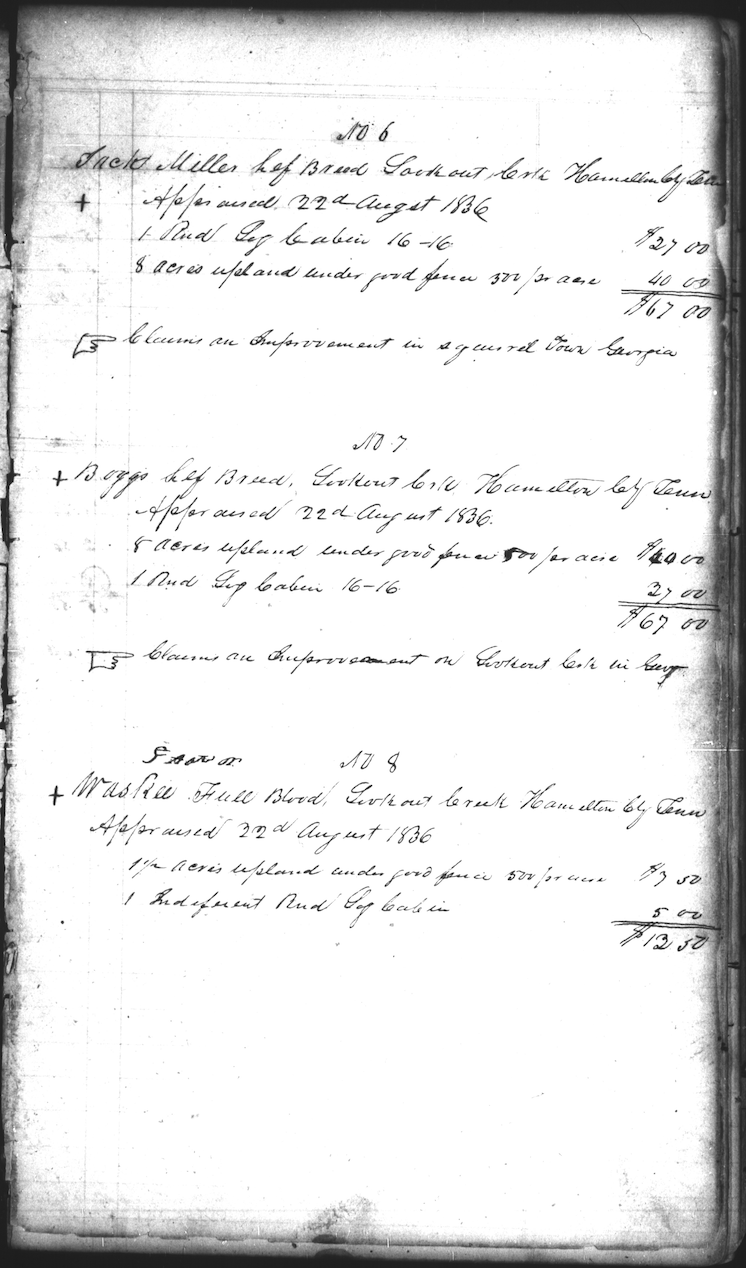 No 6
Jack Miller hlf Breed Lookout Crk Hamelton Cty Tenn
+ Appraised 22d Augst 1836
1 Rnd Log Cabin 16-16 $27 00
8 acres upland under good fence 500 pr acre 40 00
$67 00
☞ Claims an Improvement in squirrel Town Georgia
No 7
+ Boggs hlf Breed, Lookout Crk Hamelton Cty Tenn
Appraised 22d August 1836.
8 acres upland under good fence 500 pr acre $40 00
1 Rnd Log Cabin 16-16 27 00
$67 00
☞ Claims an Improvement on Lookout Crk in Georg
No 8
+ Waskee Full Blood, Lookout Creek Hamelton Cty Tenn
Appraised 22d August 1836
1½ acres upland under good fence 500 pr acre $7 50
1 Indeferent Rnd Log Cabin 5 00
$12 50